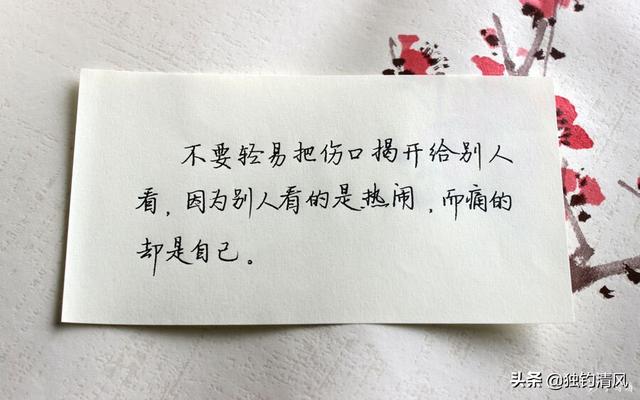 不要轻易把伤口揭开给别人
看，因为别人看的是热闹，而痛的
却是自己。
头条 @独钓清风